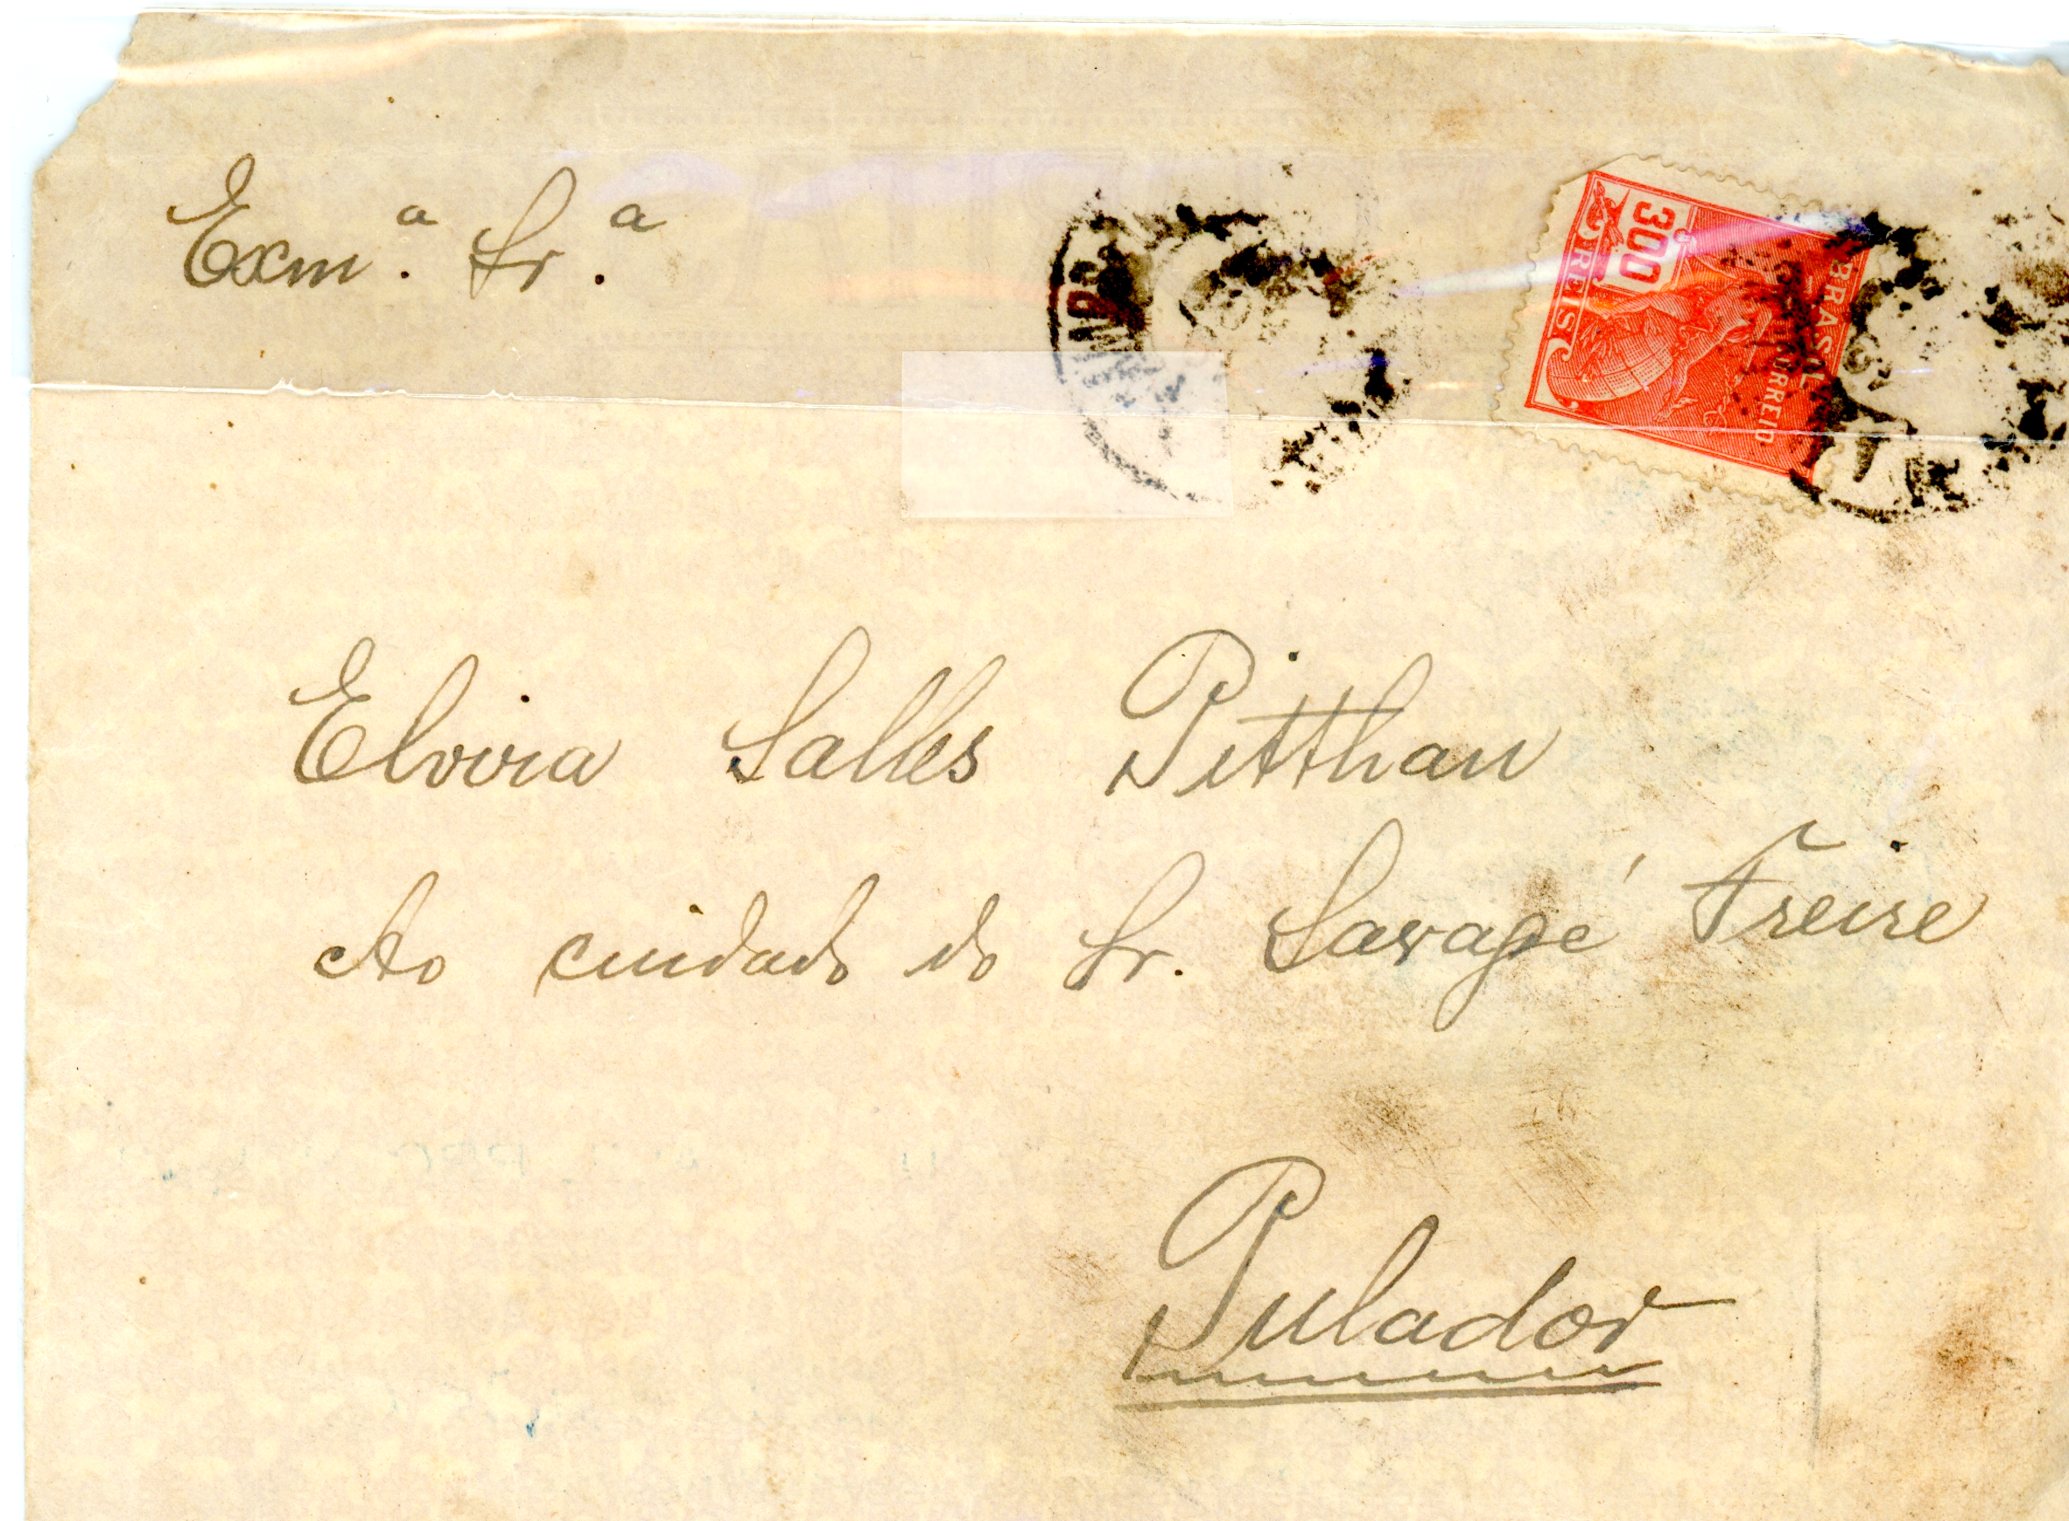 Exmª. Srª.
300
RÉIS
BRASIL
CORREIO
Elvira Salles Pitthan
Ao cuidado do Sr. Savagé Freire
Pulador